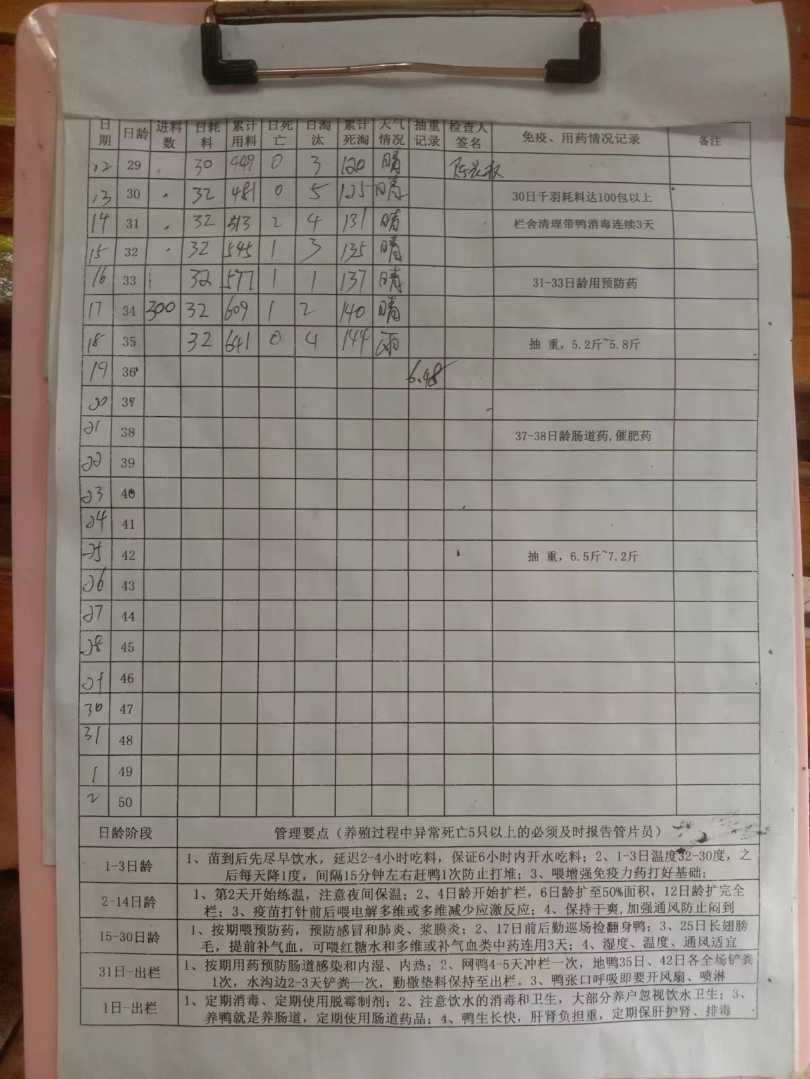 日期 日龄 进料数 日耗料 累计用料 日死亡 日淘汰 累计死淘 天气情况 抽重记录 检查人签名 免疫、用药情况记录 备注
12 29 30 449 0 3 120 晴
13 30 32 481 0 5 125 晴 30日千羽耗料达100包以上
14 31 32 513 2 4 131 晴 栏舍清理带鸭消毒连续3天
15 32 32 545 1 3 135 晴
16 33 32 577 1 1 137 晴 31-33日龄用预防药
17 34 300 32 609 1 2 140 晴
18 35 32 641 0 4 144 雨 抽 重，5.2斤~5.8斤
19 36 6.48
20 37
21 38 37-38日龄肠道药,催肥药
22 39
23 40
24 41
25 42 抽 重，6.5斤~7.2斤
26 43
27 44
28 45
29 46
30 47
31 48
1 49
2 50
日龄阶段 管理要点（养殖过程中异常死亡5只以上的必须及时报告管片员）
1-3日龄 1、苗到后先尽早饮水，延迟2-4小时吃料，保证6小时内开水吃料；2、1-3日温度32-30度，之
后每天降1度，间隔15分钟左右赶鸭1次防止打堆；3、喂增强免疫力药打好基础；
2-14日龄 1、第2天开始练温，注意夜间保温；2、4日龄开始扩栏，6日龄扩至50%面积，12日龄扩完全
栏；3、疫苗打针前后喂电解多维或多维减少应激反应；4、保持干爽,加强通风防止闷到
15-30日龄 1、按期喂预防药，预防感冒和肺炎、浆膜炎；2、17日前后勤巡场捡翻身鸭；3、25日长翅膀
毛，提前补气血，可喂红糖水和多维或补气血类中药连用3天；4、湿度、温度、通风适宜
31日-出栏 1、按期用药预防肠道感染和内湿、内热；2、网鸭4-5天冲栏一次，地鸭35日、42日各全场铲粪
1次，水沟边2-3天铲粪一次，勤撒垫料保持至出栏。3、鸭张口呼吸即要开风扇、喷淋
1日-出栏 1、定期消毒、定期使用脱霉制剂；2、注意饮水的消毒和卫生，大部分养户忽视饮水卫生；3、
养鸭就是养肠道，定期使用肠道药品；4、鸭生长快，肝肾负担重，定期保肝护肾、排毒